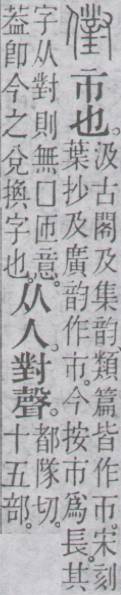 市也。
汲古閣及集韵、類篇皆作帀。宋刻
葉抄及廣韵作市。今按市爲長。其
字从對則無囗匝意。
葢卽今之兌換字也。
从人。對聲。
都隊切。
十五部。